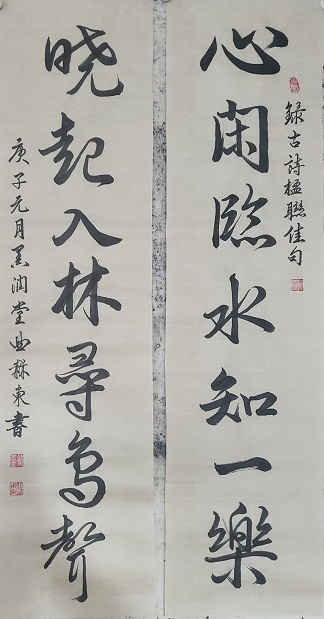 錄古詩楹聯佳句
心閑臨水知一樂
曉起入林尋鳥聲
庚子元月墨潤堂曲東書